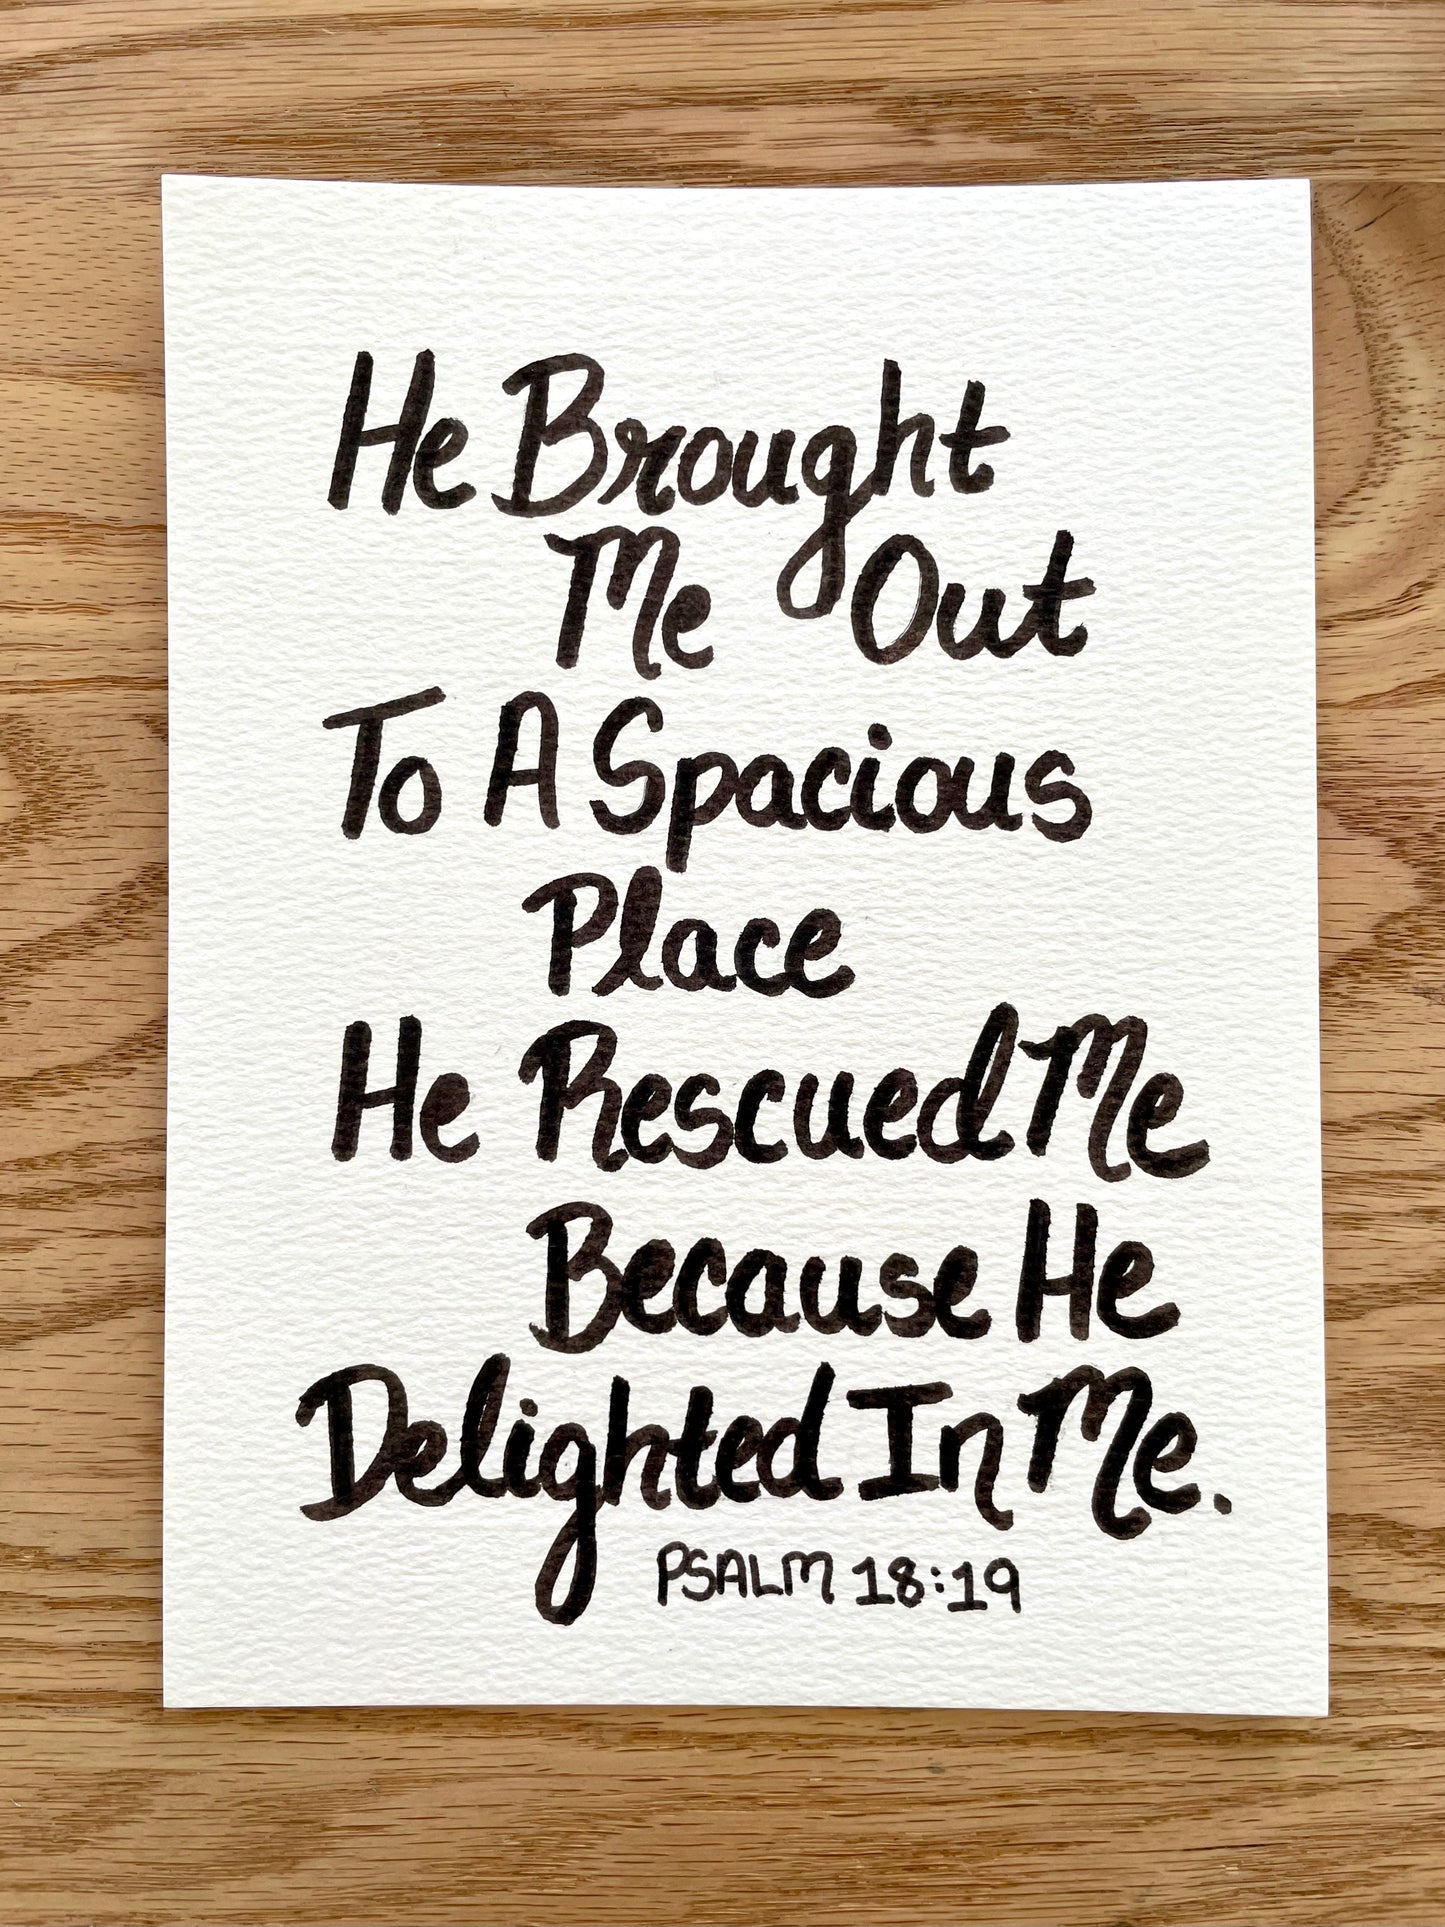 He Brought
Me Out
To A Spacious
Place
He Rescued Me
Because He
Delighted In Me.
PSALM 18:19